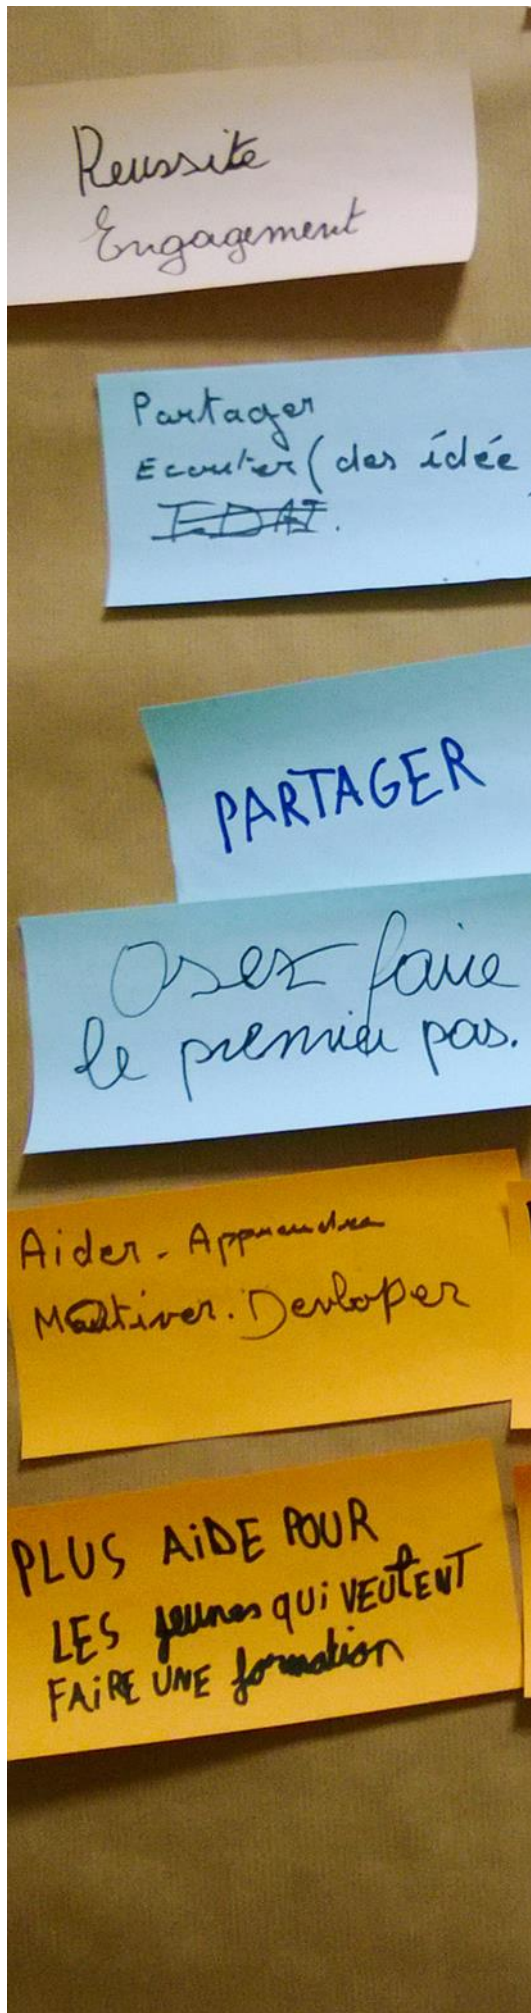 Reussite
Engagement
Partager
Ecouter (des idée
PARTAGER
Osez faire
le premier pas.
Aider - Apprendre
Motiver. Devloper
PLUS AiDE POUR
LES jeunes QUi VEULENT
FAiRE UNE formation